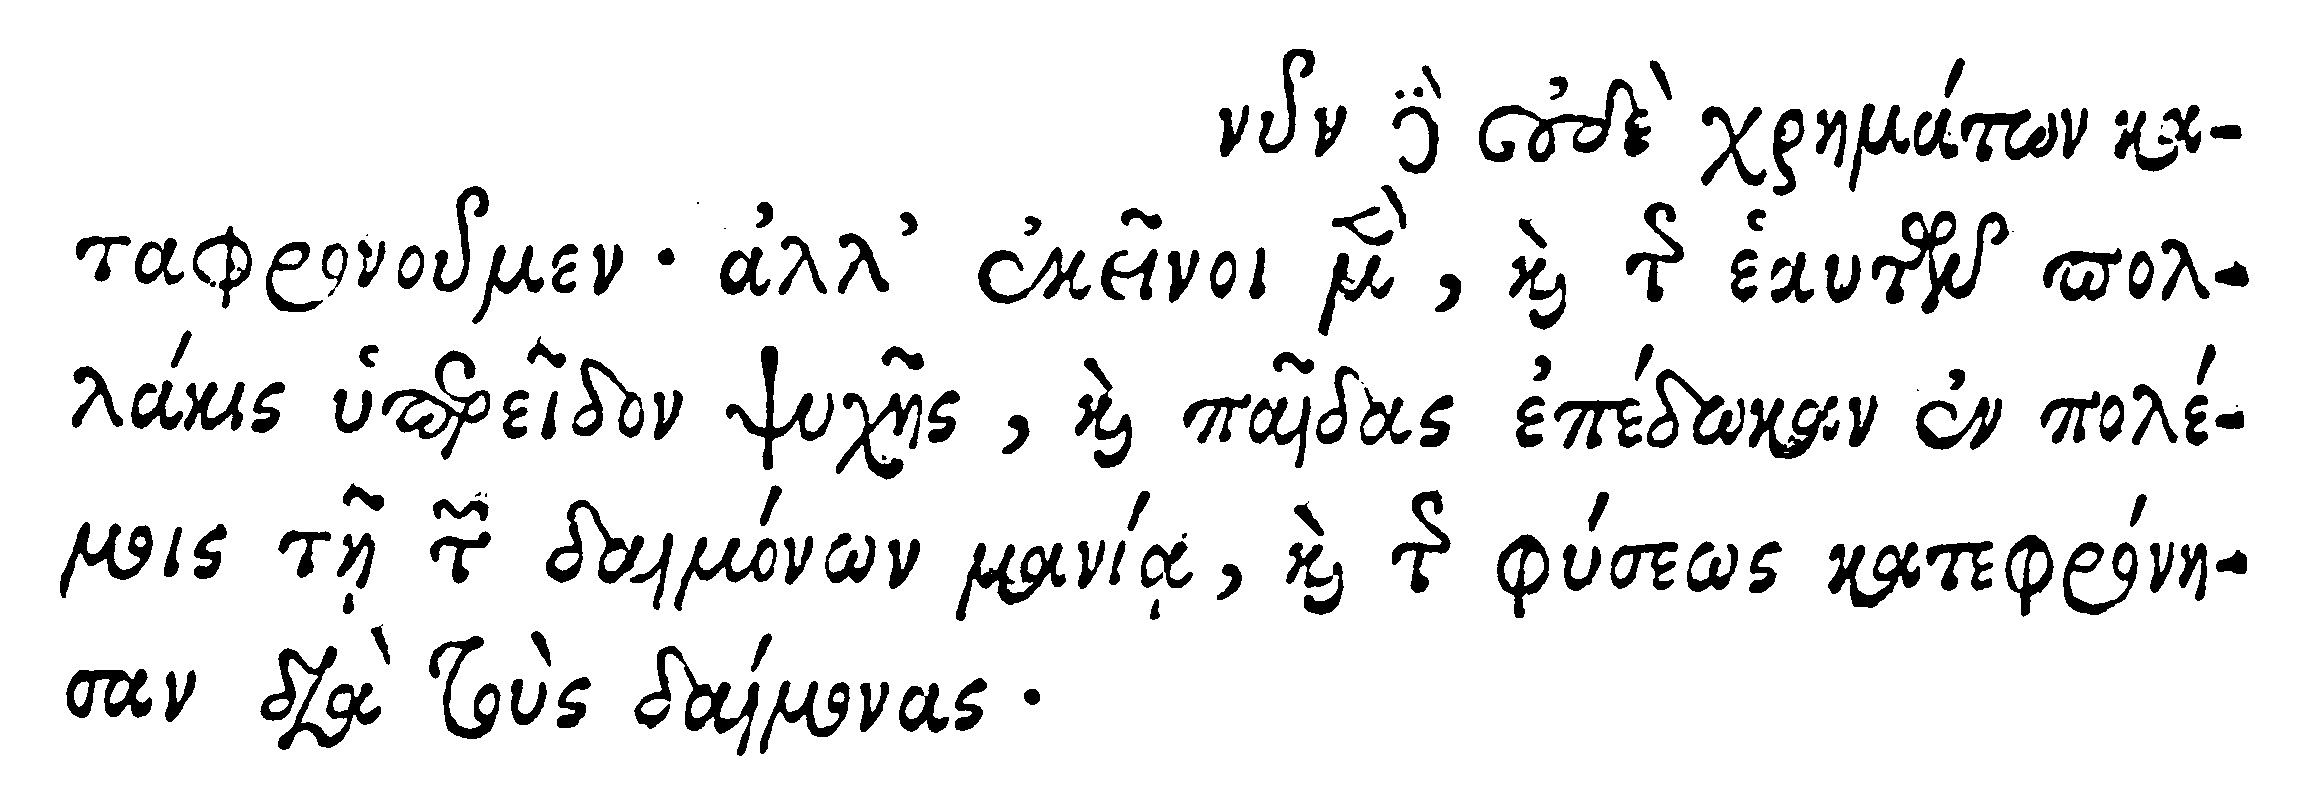 νῦν δὲ οὐδὲ χρημάτων κα-
ταφρονοῦμεν· ἀλλ’ ἐκεῖνοι μὲν, καὶ τῆς ἑαυτῶν πολ-
λάκις ὑπερεῖδον ψυχῆς, καὶ παῖδας ἐπέδωκαν ἐν πολέ-
μοις τῇ τῶν δαιμόνων μανίᾳ, καὶ τῆς φύσεως κατεφρόνη-
σαν διὰ τοὺς δαίμονας.